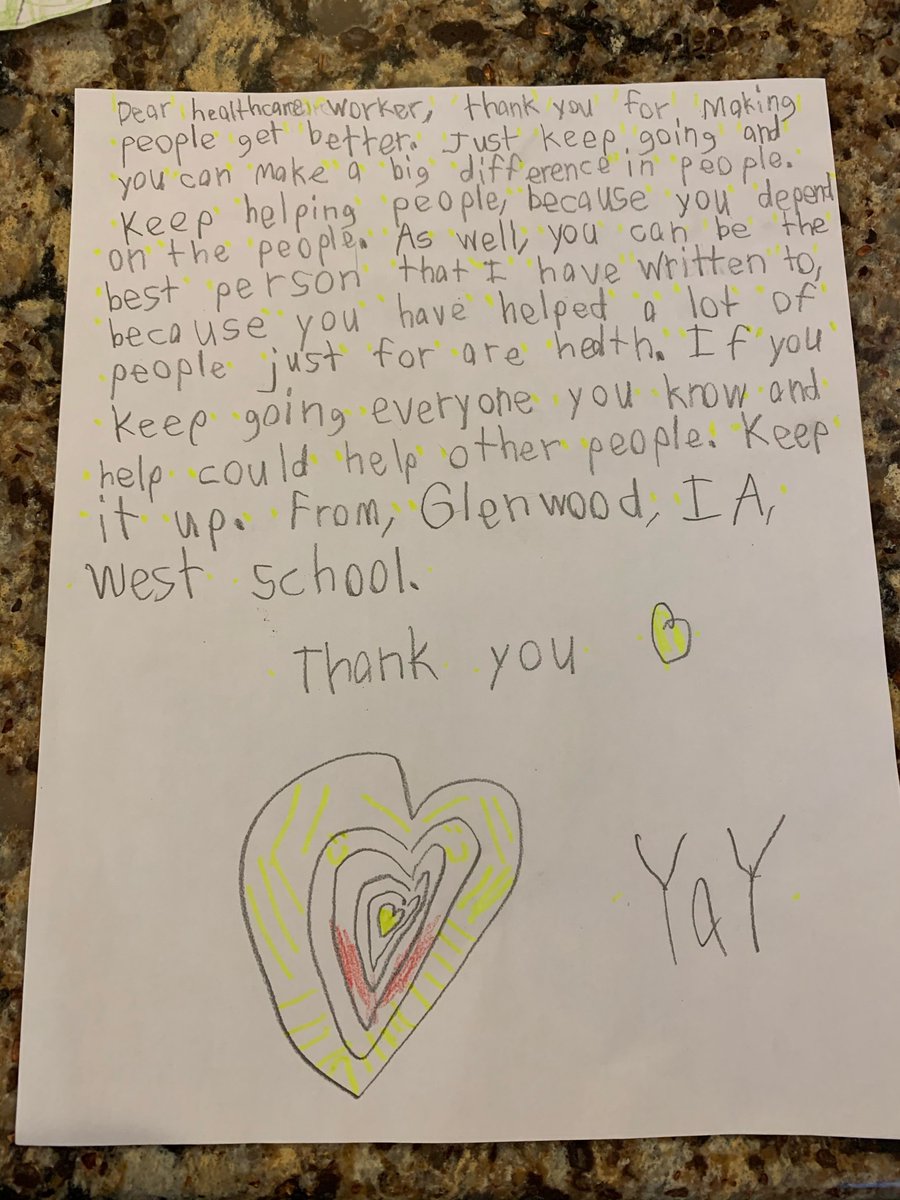 Dear healthcare worker, thank you for making
people get better. Just keep going and
you can make a big difference in people.
Keep helping people, because you depend
on the people. As well, you can be the
best person that I have written to,
because you have helped a lot of
people just for are health. If you
keep going everyone you know and
help could help other people. Keep
it up. From, Glenwood, IA,
West school.
Thank you
YaY